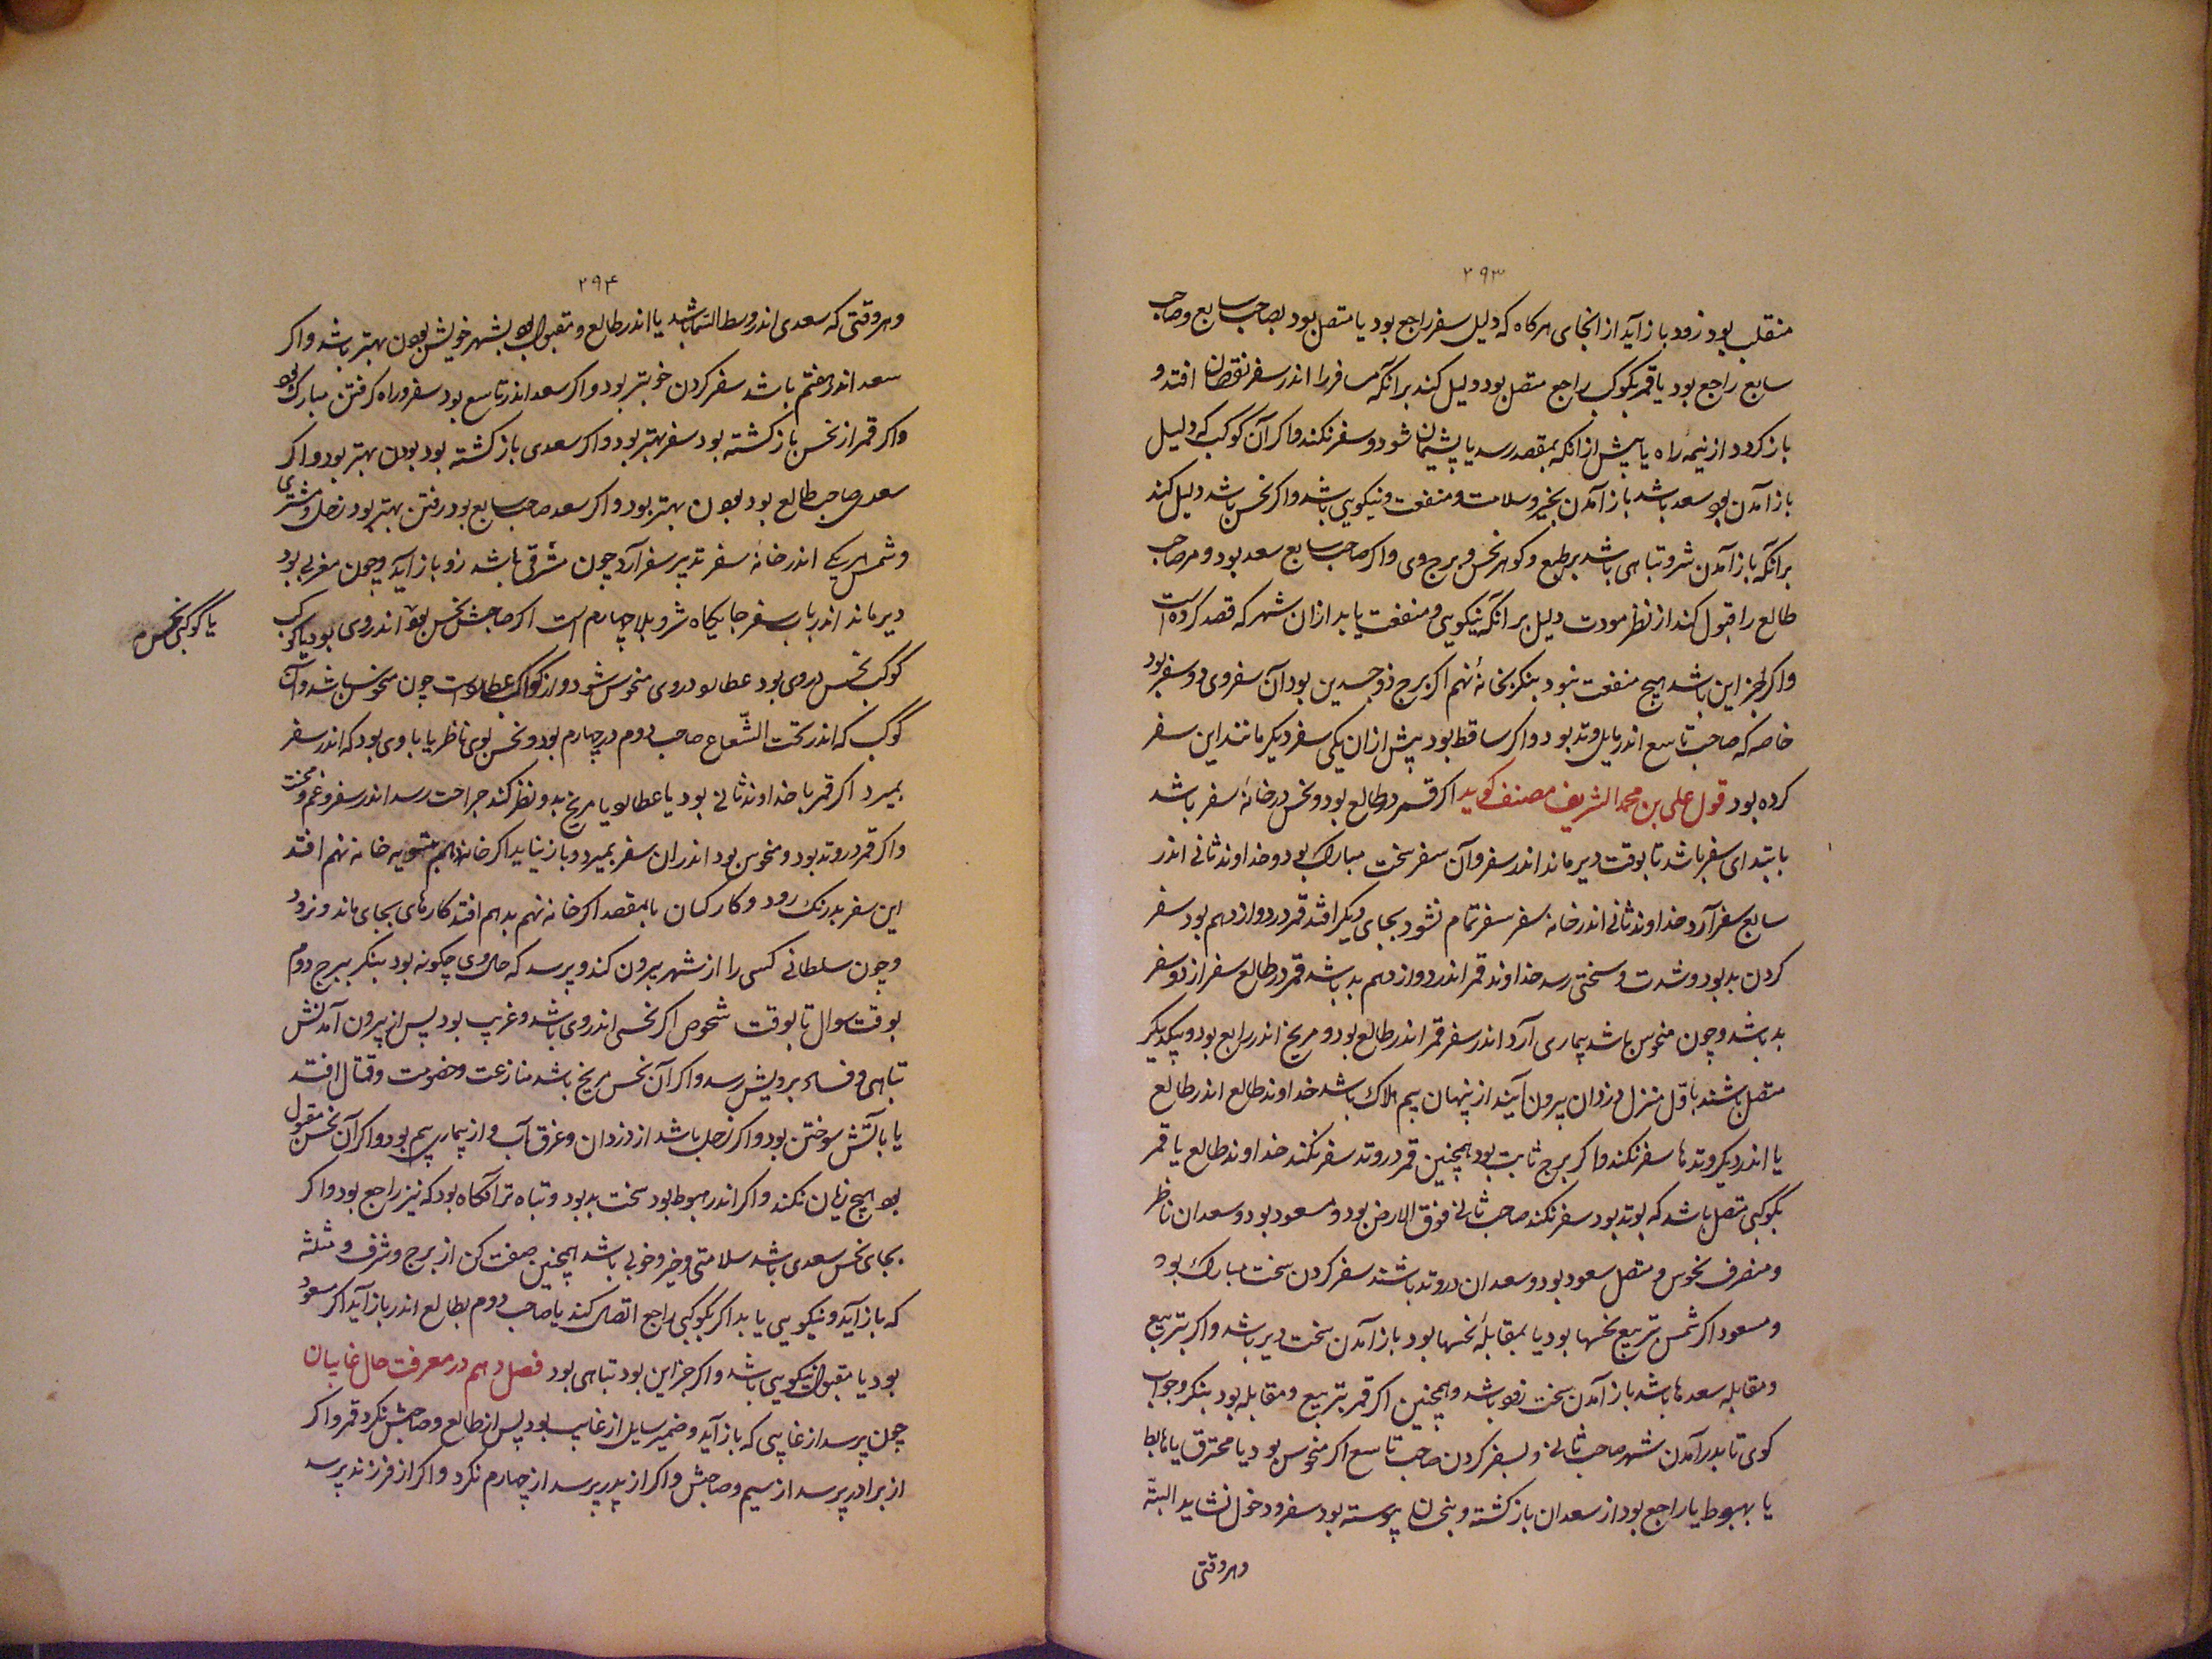 ۲۹۳
منقلب بود زود باز آید از انجای هر کاه که دلیل سفر راجع بود یا متصل بود بصاحب سابع و صاحب
سابع راجع بود یا قمر بکوکب راجع متصل بود دلیل کند برانکه مسافر را اندر سفر نقصان افتد و
باز کردد از نیمهٔ راه یا پیش از انکه بمقصد رسد یا پشیمان شود و سفر نکند و اکر آن کوکب که دلیل
باز آمدن بود سعد باشد باز آمدن بخیر و سلامت و منفعت و نیکویی باشد و اکر نحس باشد دلیل کند
برانکه باز آمدن شر و تباهی باشد بر طبع و کوهر نحس و برج وی و اکر صاحب سابع سعد بود و مر صاحب
طالع را قبول کند از نظر مودت دلیل بر انکه نیکویی و منفعت یابد ازان شهر که قصد کرده است
و اکر بجز این باشد هیچ منفعت نبود بنکر بخانهٔ نهم اکر برج ذو جسدین بود آن سفر وی دو سفر بود
خاصه که صاحب تاسع اندر مایل وتد بود و اکر ساقط بود پیش ازان یکی سفر دیکر مانند این سفر
کرده بود قول علی بن محمد الشریف مصنف کوید اکر قمر در طالع بود و نحس در خانهٔ سفر باشد
بابتدای سفر باشد تا بوقت دیر ماند اندر سفر و آن سفر سخت مبارک بود و خداوند ثانی اندر
سابع سفر آرد خداوند ثانی اندر خانه سفر سفر تمام نشود بجای دیکر افتد قمر در دوازدهم بود سفر
کردن بد بود و شدت و سختی رسد خداوند قمر اندر دوازدهم بد باشد قمر در طالع سفر از دو سفر
بد باشد و چون منحوس باشد بیماری آرد اندر سفر قمر اندر طالع بود و مریخ اندر رابع بود و بیکدیکر
متصل باشند باول منزل دزدان بیرون آیند از پنهان بیم هلاک باشد خداوند طالع اندر طالع
یا اندر دیکر وتدها سفر نکند و اکر برج ثابت بود همچنین قمر در وتد سفر نکند خداوند طالع یا قمر
بکوکبی متصل باشد که بوتد بود سفر نکند صاحب ثانی فوق الارض بود و مسعود بود و سعدان ناظر
و منصرف نحوس و متصل سعود بود و سعدان در وتد باشند سفر کردن سخت مبارک بود
و مسعود اکر شمس بتربیع نحسها بود یا بمقابلهٔ نحسها بود باز آمدن سخت دیر باشد و اکر بتربیع
و مقابله سعدها باشد باز آمدن سخت زود باشد و همچنین اکر قمر بتربیع و مقابله بود بنکر و جواب
کوی تا بدر آمدن شهر صاحب ثانی و بسفر کردن صاحب تاسع اکر منحوس بود یا محترق یا هابط
یا بهبوط یا راجع بود از سعدان باز کشته و بنحسان پیوسته بود سفر و دخول نشاید البتهٔ
و هر وقتی
۲۹۴
و هر وقتی که سعدی اندر وسط السما باشد یا اندر طالع و مقبول بود بشهر خویش بودن بهتر باشد و اکر
سعد اندر هفتم باشد سفر کردن خوبتر بود و اکر سعد اندر تاسع بود سفر و راه کرفتن مبارک بود
و اکر قمر از نحس باز کشته بود سفر بهتر بود و اکر سعدی باز کشته بود بودن بهتر بود و اکر
سعدی صاحب طالع بود بودن بهتر بود و اکر سعد صاحب سابع بود رفتن بهتر بود زحل و مشتری
و شمس هر یکی اندر خانهٔ سفر تدبیر سفر آرد چون مشرقی باشد زود باز آید و چون مغربی بود
دیر ماند اندر باب سفر جایکاه شر و بلا چهارم است اکر صاحبش نحس بود اندر وی بود یا کوکب
کوکب نحس در وی بود عطارد در وی منحوس شود و از کواکب عطاردست چون منحوس باشد و آن
کوکب که اندر تحت الشعاع صاحب دوم در چهارم بود و نحس بوی ناظر یا با وی بود که اندر سفر
بمیرد اکر قمر با خداوند ثانی بود یا عطارد یا مریخ بدو نظر کند جراحت رسد اندر سفر و غم و محنت
و اکر قمر در وتد بود و منحوس بود اندران سفر بمیرد و باز نیاید اکر خانهٔ دهم بتسویه خانه نهم افتد
این سفر بدرنک رود و کار کسان بالمقصد اکر خانه نهم بدهم افتد کارهای بجای ماند و نرود
و چون سلطانی کسی را از شهر بیرون کند و پرسد که حال وی چکونه بود بنکر ببرج دوم
بوقت سوال تا بوقت شخوص اکر نحسی اندر وی باشد و غریب بود پس از بیرون آمدنش
تباهی و فساد برویش رسد و اکر آن نحس مریخ باشد منازعت و خصومت و قتال افتد
یا بآتش سوختن بود و اکر زحل باشد از دزدان و غرق آب و از بیماری بیم بود و اکر آن نحس مقبول
بود هیچ زیان نکند و اکر اندر هبوط بود سخت بد بود و تباه تر آنکاه بود که نیز راجع بود و اکر
بجای نحس سعدی باشد سلامتی و خیر و خوبی باشد همچنین صفت کن از برج و شرف و مثلثه
که باز آید و نیکویی یابد اکر بکوکبی راجع اتصال کند یا صاحب دوم بطالع اندر باز آید اکر مسعود
بود یا مقبول نیکویی باشد و اکر جز این بود تباهی بود فصل دهم در معرفت حال غایبان
چون پرسد از غایبی که باز آید و ضمیر سایل از غایب بود پس از طالع و صاحبش نکرد قمر و اکر
از برادر پرسد از سیم و صاحبش و اکر از پدر پرسد از چهارم نکرد و اکر از فرزند پرسد
یا کوکبی نحس